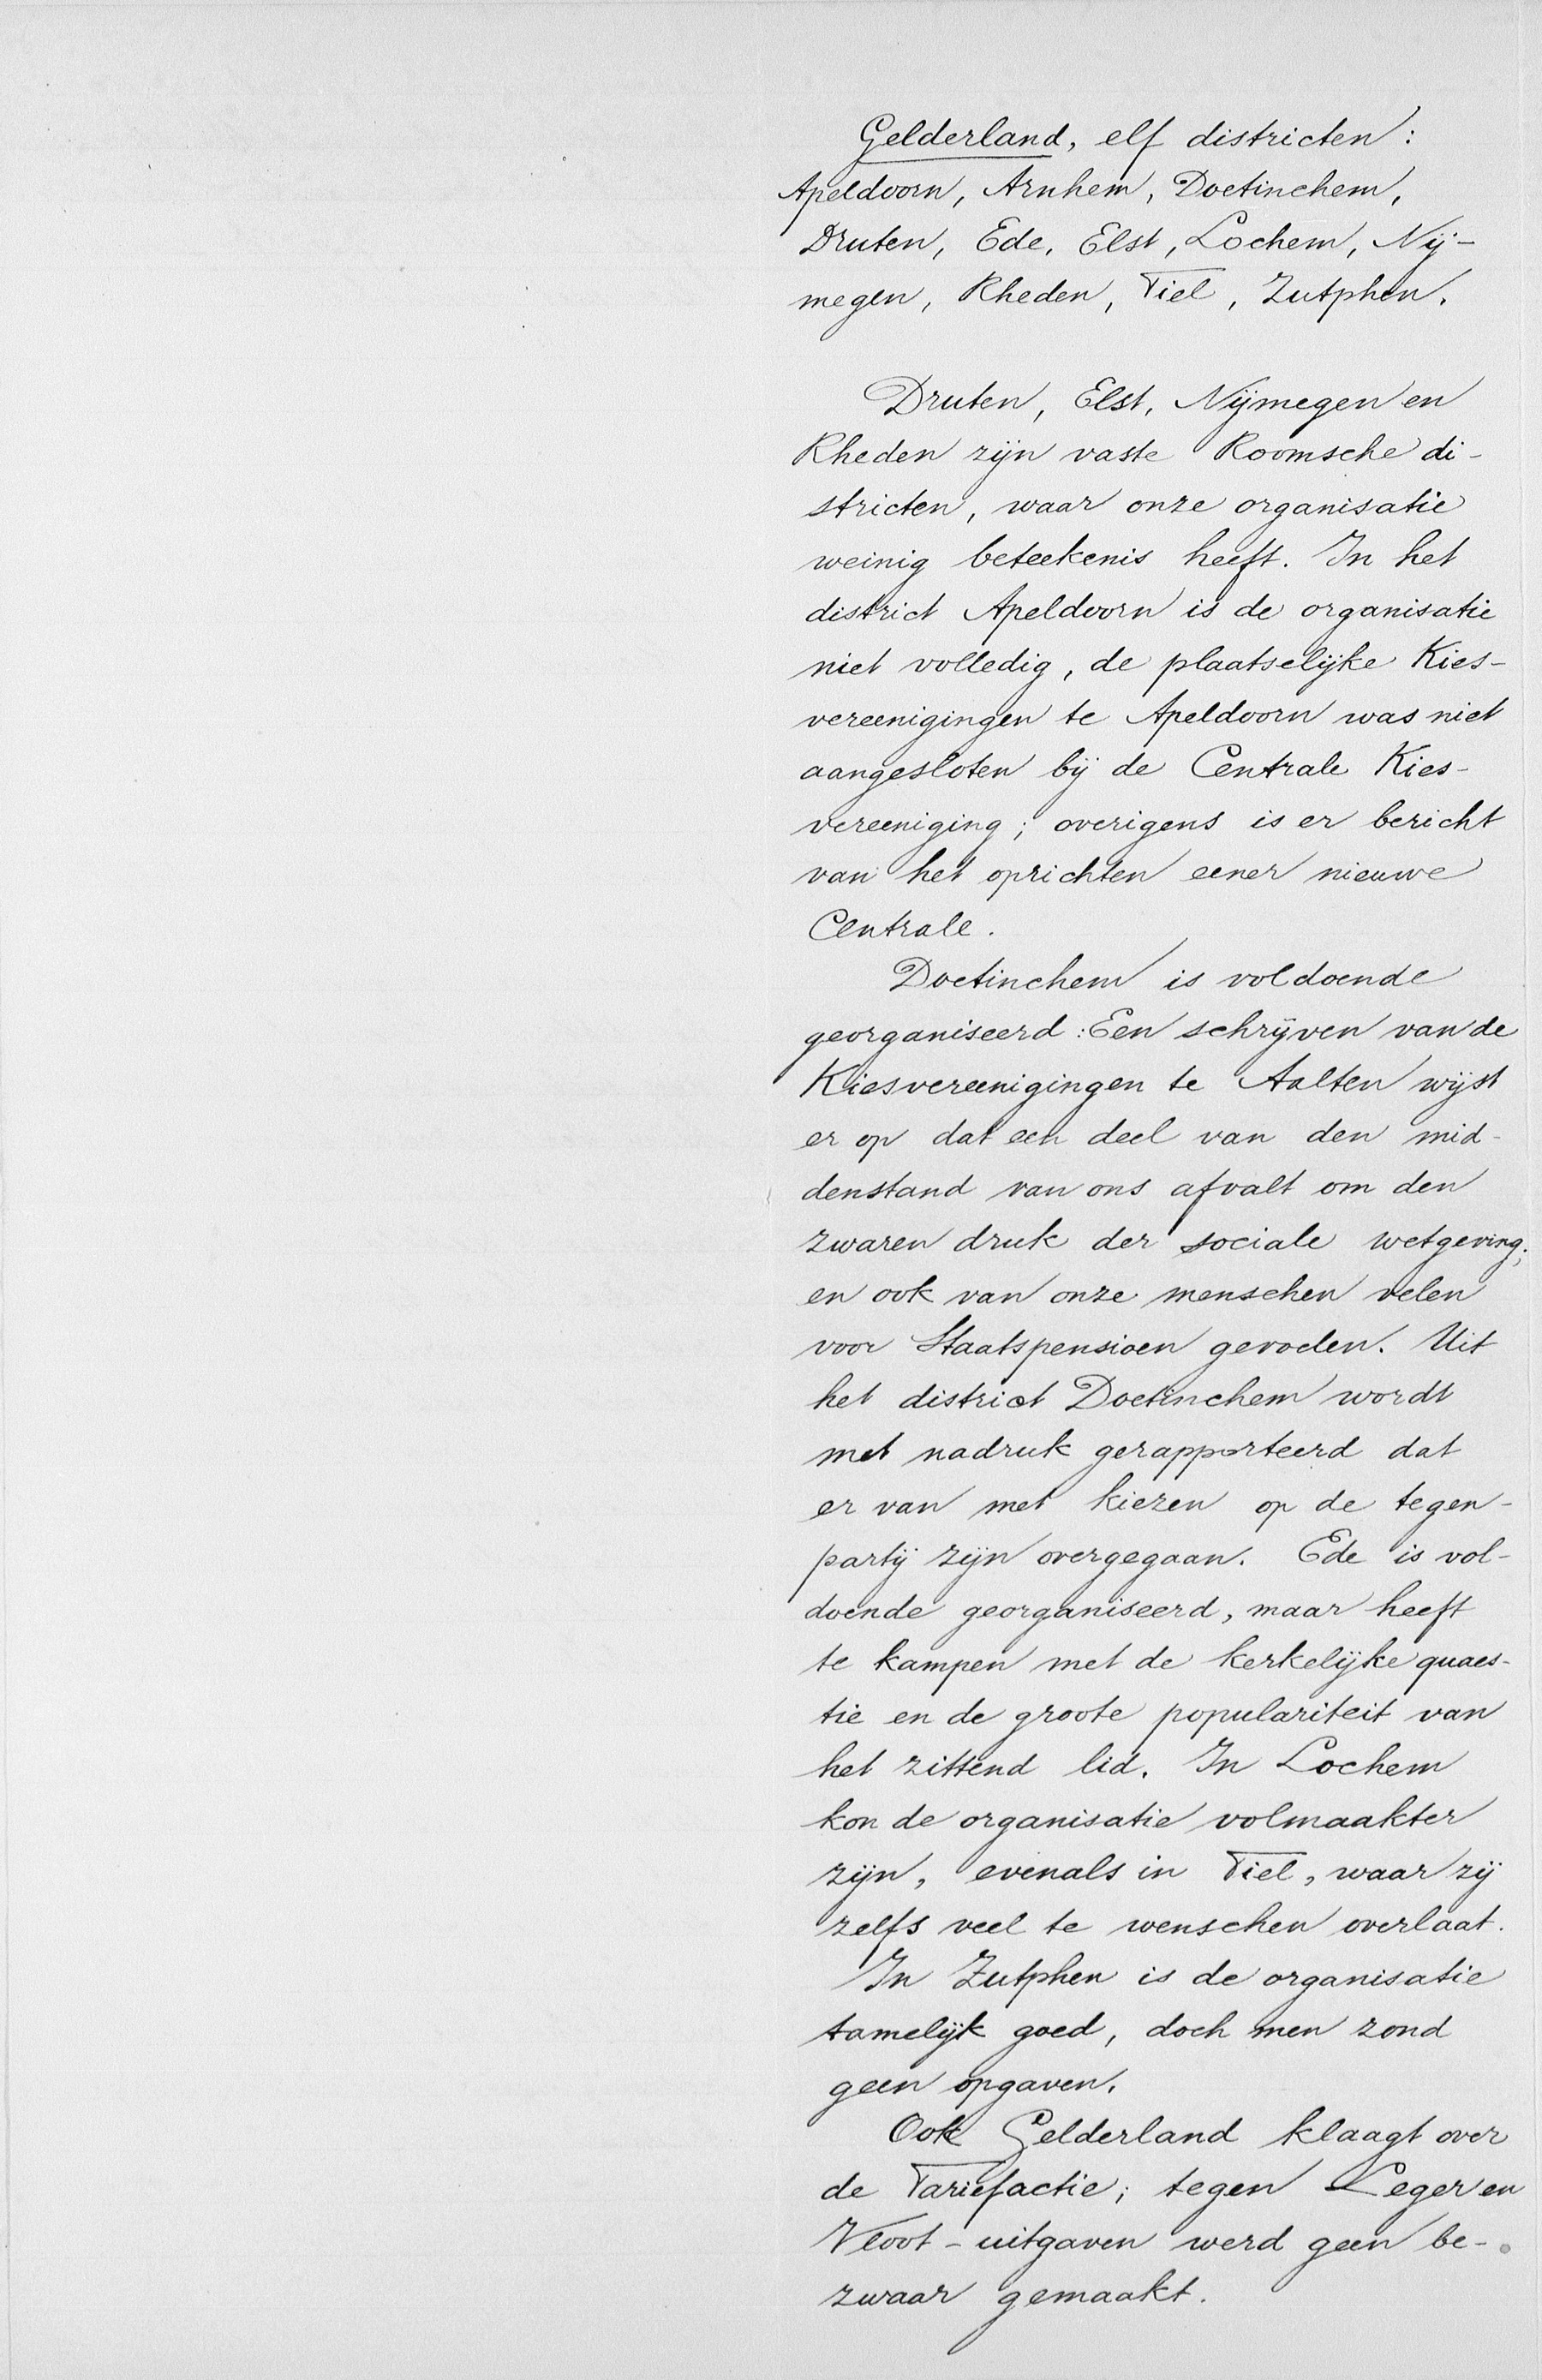 Gelderland, elf districten:
Apeldoorn, Arnhem, Doetinchem,
Druten, Ede, Elst, Lochem, Nij-
megen, Rheden, Tiel, Zutphen.
Druten, Elst, Nijmegen en
Rheden zijn vaste Roomsche di-
stricten, waar onze organisatie
weinig beteekenis heeft. In het
district Apeldoorn is de organisatie
niet volledig, de plaatselijke Kies-
vereenigingen te Apeldoorn was niet
aangesloten bij de Centrale Kies-
vereeniging; overigens is er bericht
van het oprichten eener nieuwe
Centrale.
Doetinchem is voldoende
georganiseerd: Een schrijven van de
Kiesvereenigingen te Aalten wijst
er op dat een deel van den mid-
denstand van ons afvalt om den
zwaren druk der sociale wetgeving;
en ook van onze menschen velen
voor Staatspensioen gevoelen. Uit
het district Doetinchem wordt
met nadruk gerapporteerd dat
er van met kiezen op de tegen-
partij zijn overgegaan. Ede is vol-
doende georganiseerd, maar heeft
te kampen met de kerkelijke quaes-
tie en de groote populariteit van
het zittend lid. In Lochem
kon de organisatie volmaakter
zijn, evenals in Tiel, waar zij
zelfs veel te wenschen overlaat.
In Zutphen is de organisatie
tamelijk goed, doch men zond
geen opgaven.
Ook Gelderland klaagt over
de Tariefactie; tegen Leger en
Vloot-uitgaven werd geen be-
zwaar gemaakt.